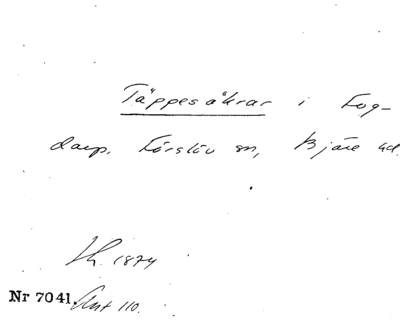 Täppesåkrar i Fog-
darp. Förslöv sn, Bjäre hd.
Lh. 1874
Nr 7041. Ant 110.